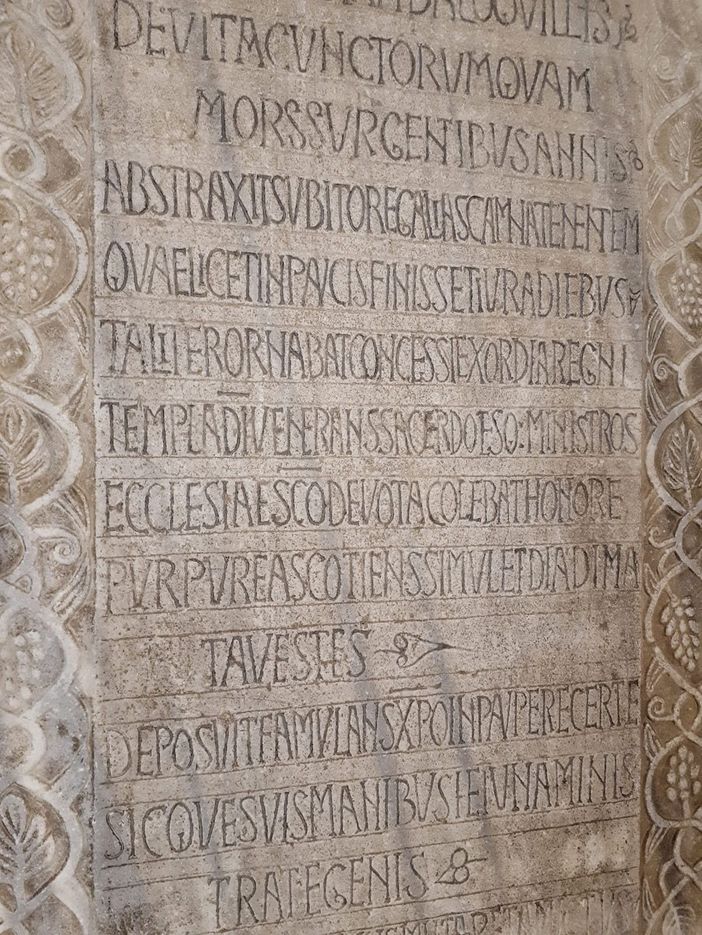 DEVITACVNCTORVMQVAM
MORSSVRGENTIBVSANNIS
ABSTRAXITSVBITOREGALIASCAMNATENENTEM
QVAELICETINPAVCISFINISSETIVRADIEBVS
TALITERORNABATCONCESSIEXORDIAREGNI
TEMPLADIVENERANSSACERDOESQ:MINISTROS
ECCLESIAESCODEVOTACOLEBATHONORE
PVRPVREASCOTIENSSIMVLETDIADIMA
TAVESTES
DEPOSVITFAMVLANSXPOINPAVPERECERTE
SICQVESVISMANIBVSIEIVNAMINIS
TRATEGENIS